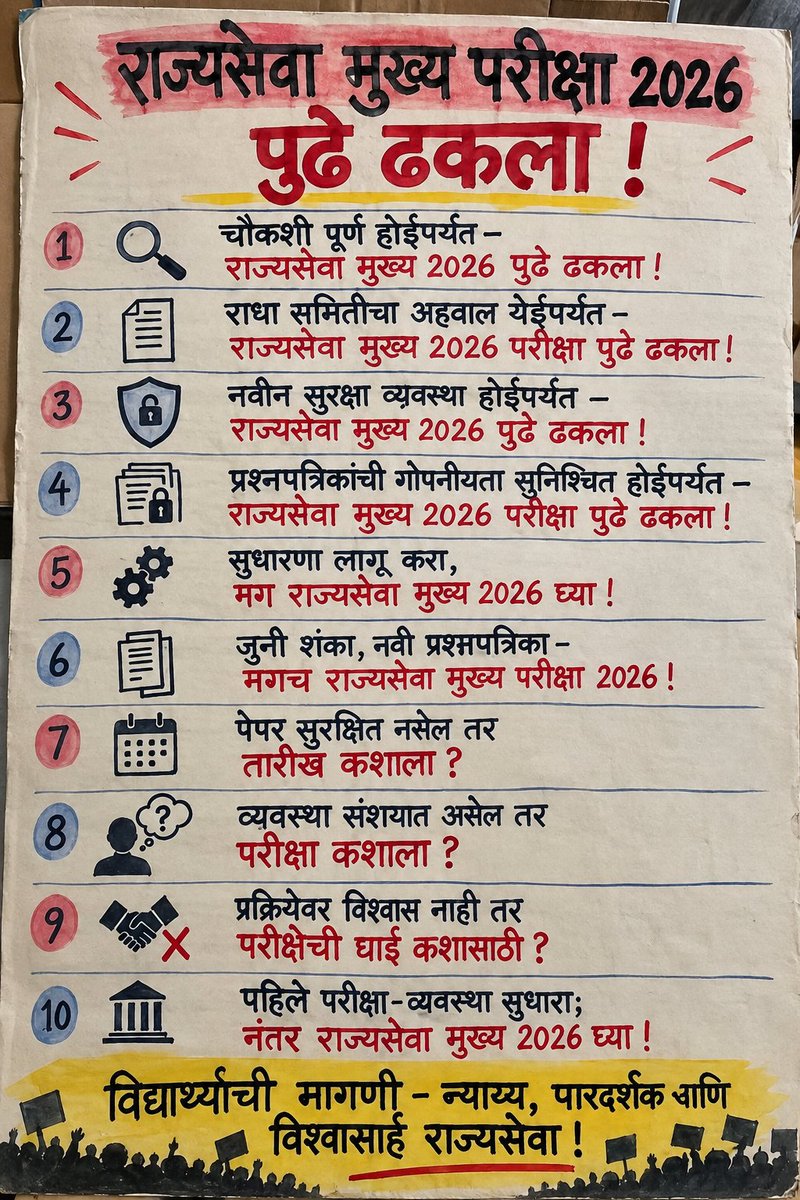 राज्यसेवा मुख्य परीक्षा 2026
पुढे ढकला !
1
चौकशी पूर्ण होईपर्यत –
राज्यसेवा मुख्य 2026 पुढे ढकला !
2
राधा समितीचा अहवाल येईपर्यत –
राज्यसेवा मुख्य 2026 परीक्षा पुढे ढकला !
3
नवीन सुरक्षा व्यवस्था होईपर्यत –
राज्यसेवा मुख्य 2026 पुढे ढकला !
4
प्रश्नपत्रिकांची गोपनीयता सुनिश्चित होईपर्यत –
राज्यसेवा मुख्य 2026 परीक्षा पुढे ढकला !
5
सुधारणा लागू करा,
मग राज्यसेवा मुख्य 2026 घ्या !
6
जुनी शंका, नवी प्रश्नपत्रिका –
मगच राज्यसेवा मुख्य परीक्षा 2026 !
7
पेपर सुरक्षित नसेल तर
तारीख कशाला ?
8
?
व्यवस्था संशयात असेल तर
परीक्षा कशाला ?
9
प्रक्रियेवर विश्वास नाही तर
परीक्षेची घाई कशासाठी ?
10
पहिले परीक्षा-व्यवस्था सुधारा;
नंतर राज्यसेवा मुख्य 2026 घ्या !
विद्यार्थ्याची मागणी – न्याय्य, पारदर्शक आणि
विश्वासार्ह राज्यसेवा !